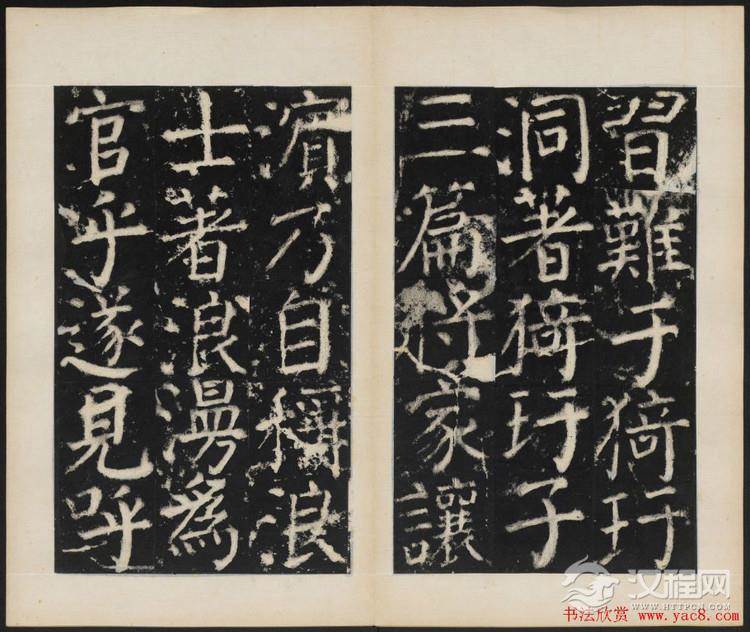 習難于猗玗
洞著猗玗子
三篇將家讓
濱乃自稱浪
士著浪漫爲
官乎遂見呼
汉程网
WWW.HTTPCN.COM
书法欣赏 www.yac8.com